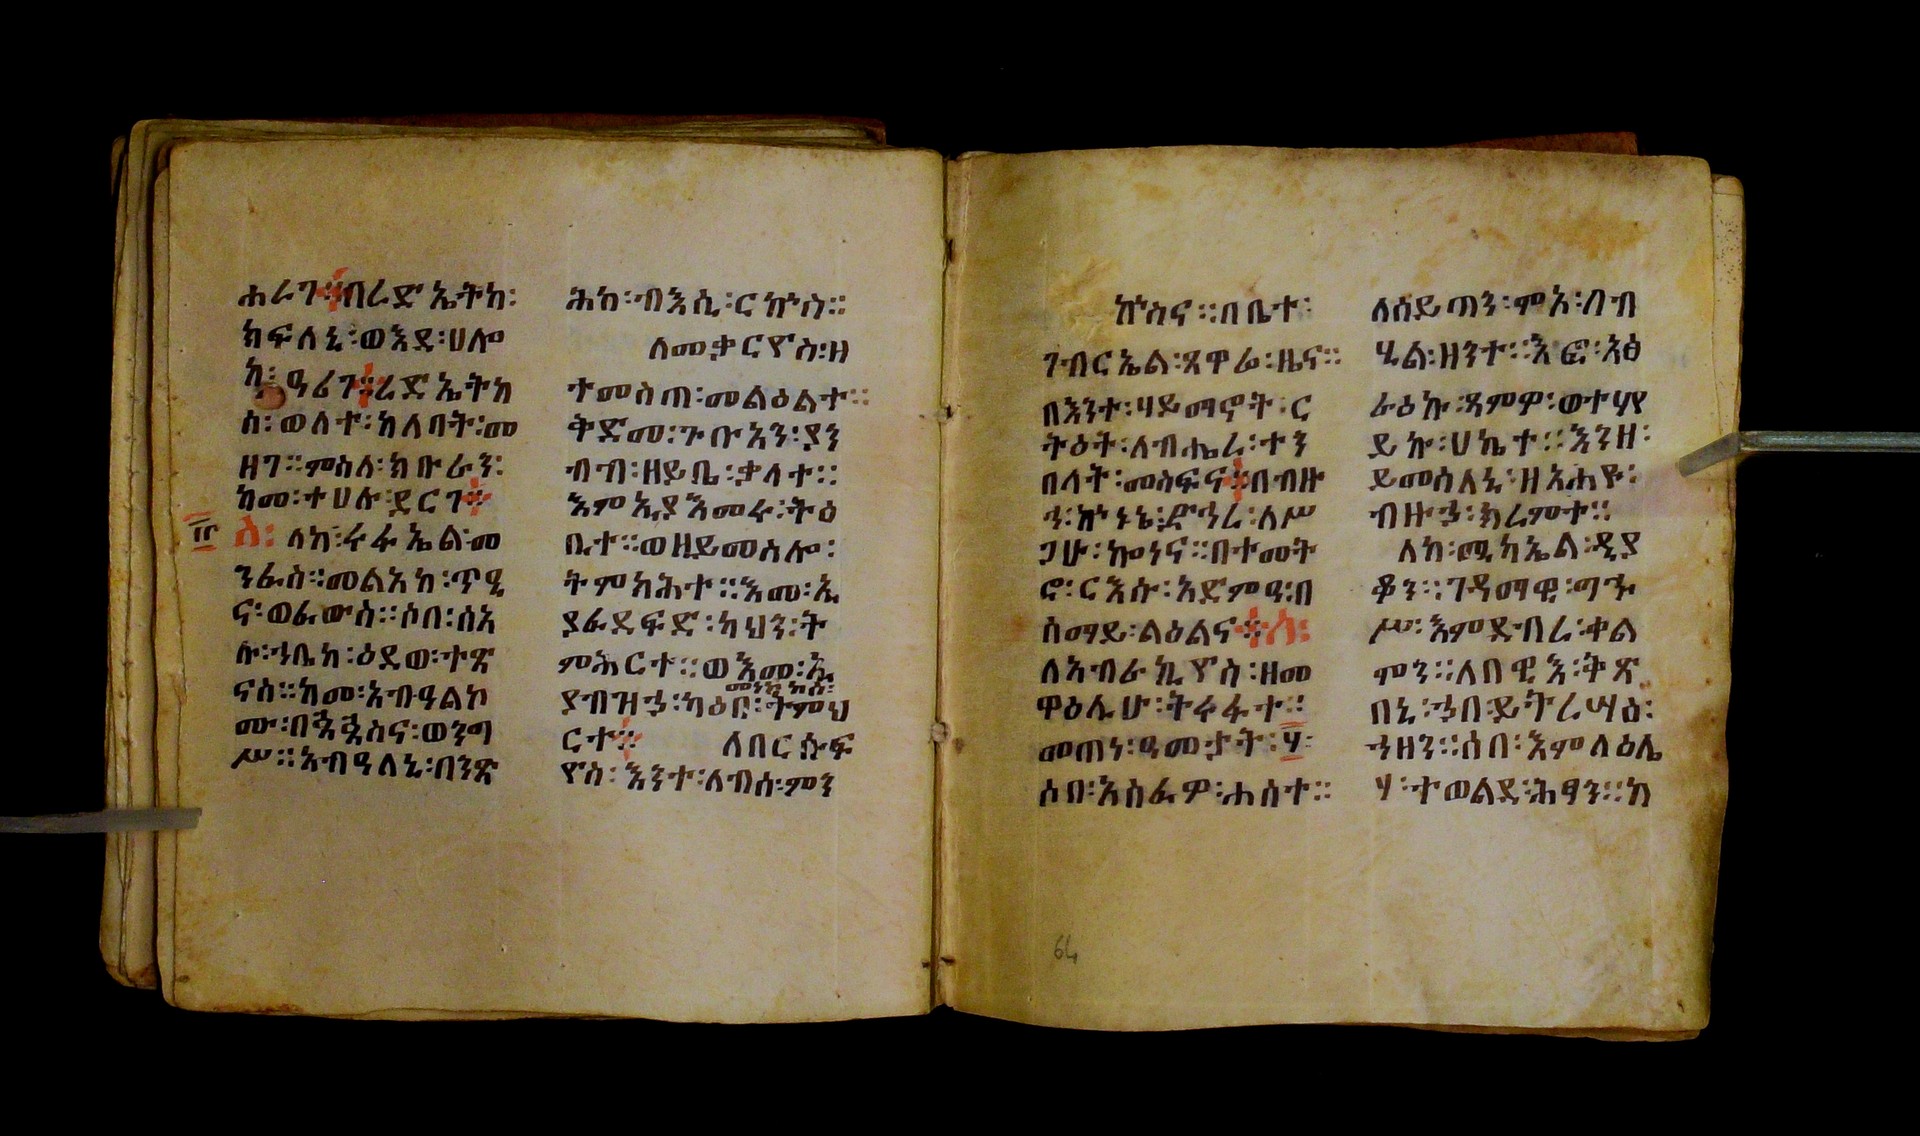 ሐራገ፨በራድኤትከ፡
ክፍለኒ፡ወእደ፡ሀሎ
ከ፡ዓሪገ፨ረድኤትከ
ሰ፡ወለተ፡ከለባት፡መ
ዘገ።ምስለ፡ክቡራን፡
ከመ፡ተሀሉ፡ደርገ፨
ስ፡ ለከ፡ሩፋኤል፡መ
ንፈስ።መልአከ፡ጥዒ
ና፡ወፈውስ።ሶበ፡ሰአ
ሉ፡ኀቤከ፡ዕደወ፡ተጽ
ናስ።ከመ፡አብዓልኮ
ሙ፡በ፡ወንግ
ሥ።አብዓለኒ፡በንጽ
ሕከ፡ብእሲ፡ርኩስ።
ለመቃርዮስ፡ዘ
ተመስጠ፡መልዕልተ።
ቅድመ፡ጉቡአን፡ያን
ብብ፡ዘይቤ፡ቃላተ።
እምኢያእመሩ፡ትዕ
ቢተ።ወዘይመስሎ፡
ትምክሕተ።እመ፡ኢ
ያፈደፍድ፡ካህን፡ት
ምሕርተ።ወእመ፡ኢ
መነኮስ፡
ያብዝኃ፡ካዕበ፡ትምህ
ርተ፨ ለበርሱፍ
ዮስ፡እንተ፡ለብሰ፡ምን
ኵስና።በቤተ፡
ገብርኤል፡ጾዋሬ፡ዜና።
በእንተ፡ሃይማኖት፡ር
ትዕት፡ለብሔረ፡ተን
በላት፡መስፍና፨በብዙ
ኀ፡ኵነኔ፡ድኀረ፡ለሥ
ጋሁ፡ኰነና።በተመት
ሮ፡ርእሱ፡አድምዓ፡በ
ሰማይ፡ልዕልና፨ስ፡
ለአብራኪዮስ፡ዘመ
ዋዕሊሁ፡ትሩፋተ።
መጠነ፡ዓመታት፡፶፡
ሶበ፡አስፈዎ፡ሐሰተ።
ለሰይጣን፡ሞአ፡በብ
ሂል፡ዘንተ።እፎ፡እፅ
ራዕኩ፡ጻምዎ፡ወተሃየ
ይኩ፡ሀኬተ።እንዘ፡
ይመስለኒ፡ዘአሕዮ፡
ብዙኃ፡ክረምተ።
ለከ፡ሚካኤል፡ዲያ
ቆን።ገዳማዊ፡ጣኑ
ሥ፡እምደብረ፡ቀል
ሞን።ለበዊእ፡ትጽ
በኒ፡ኀበ፡ይትረሣዕ፡
ኀዘን።ሰበ፡እምለዕሌ
ሃ፡ተወልደ፡ሕፃን።ከ
64